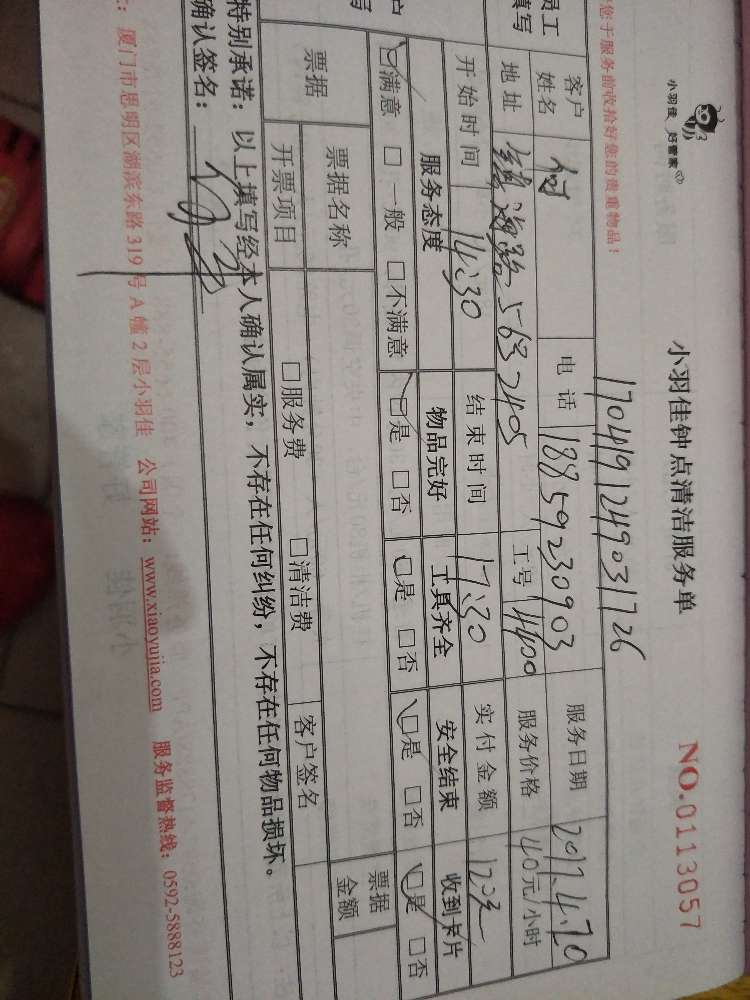 小羽佳 好管家
小羽佳钟点清洁服务单
NO.0113057
您于服务前收拾好您的贵重物品!
170491249031726
员工
填写
客户
姓名
何
电话
18859230903
服务日期
2017.4.20
地址
563 2405
工号
4400
服务价格
40元/小时
开始时间
14:30
结束时间
17:30
实付金额
120元
服务态度
物品完好
工具齐全
安全结束
收到卡片
☑满意 □一般 □不满意
☑是 □否
☑是 □否
☑是 □否
☑是 □否
户
写
票据
票据名称
票据
金额
开票项目
□服务费
□清洁费
客户签名
特别承诺:以上填写经本人确认属实,不存在任何纠纷,不存在任何物品损坏。
确认签名:
:厦门市思明区湖滨东路 319 号 A 幢 2 层小羽佳 公司网站:www.xiaoyujia.com 服务监督热线:0592-5888123